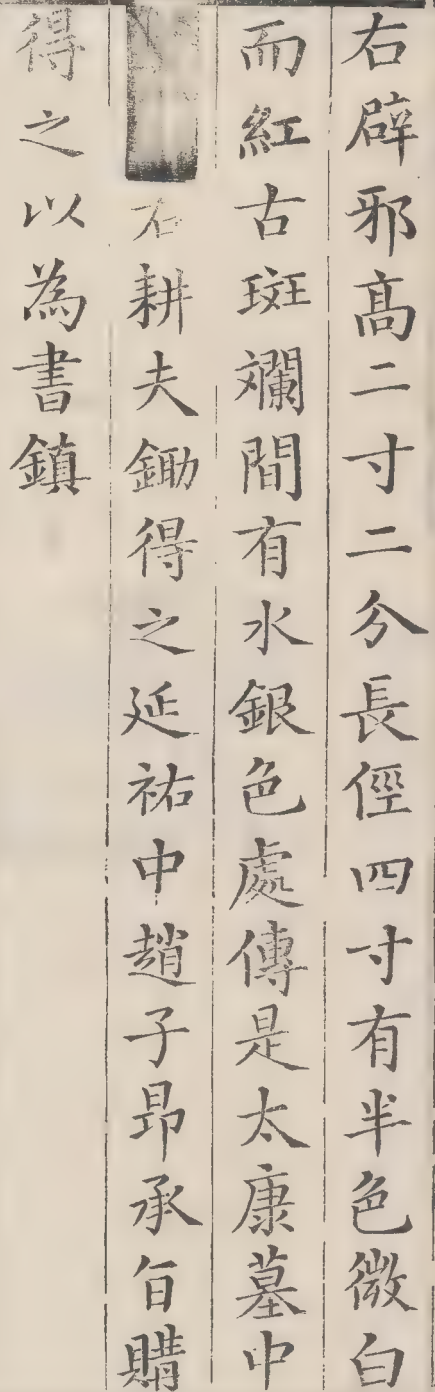 右辟邪高二寸二分長俓四寸有半色微白
而紅古斑斕間有水銀色處傳是太康墓中
耕夫鋤得之延祐中趙子昂承旨購
得之以為書鎮